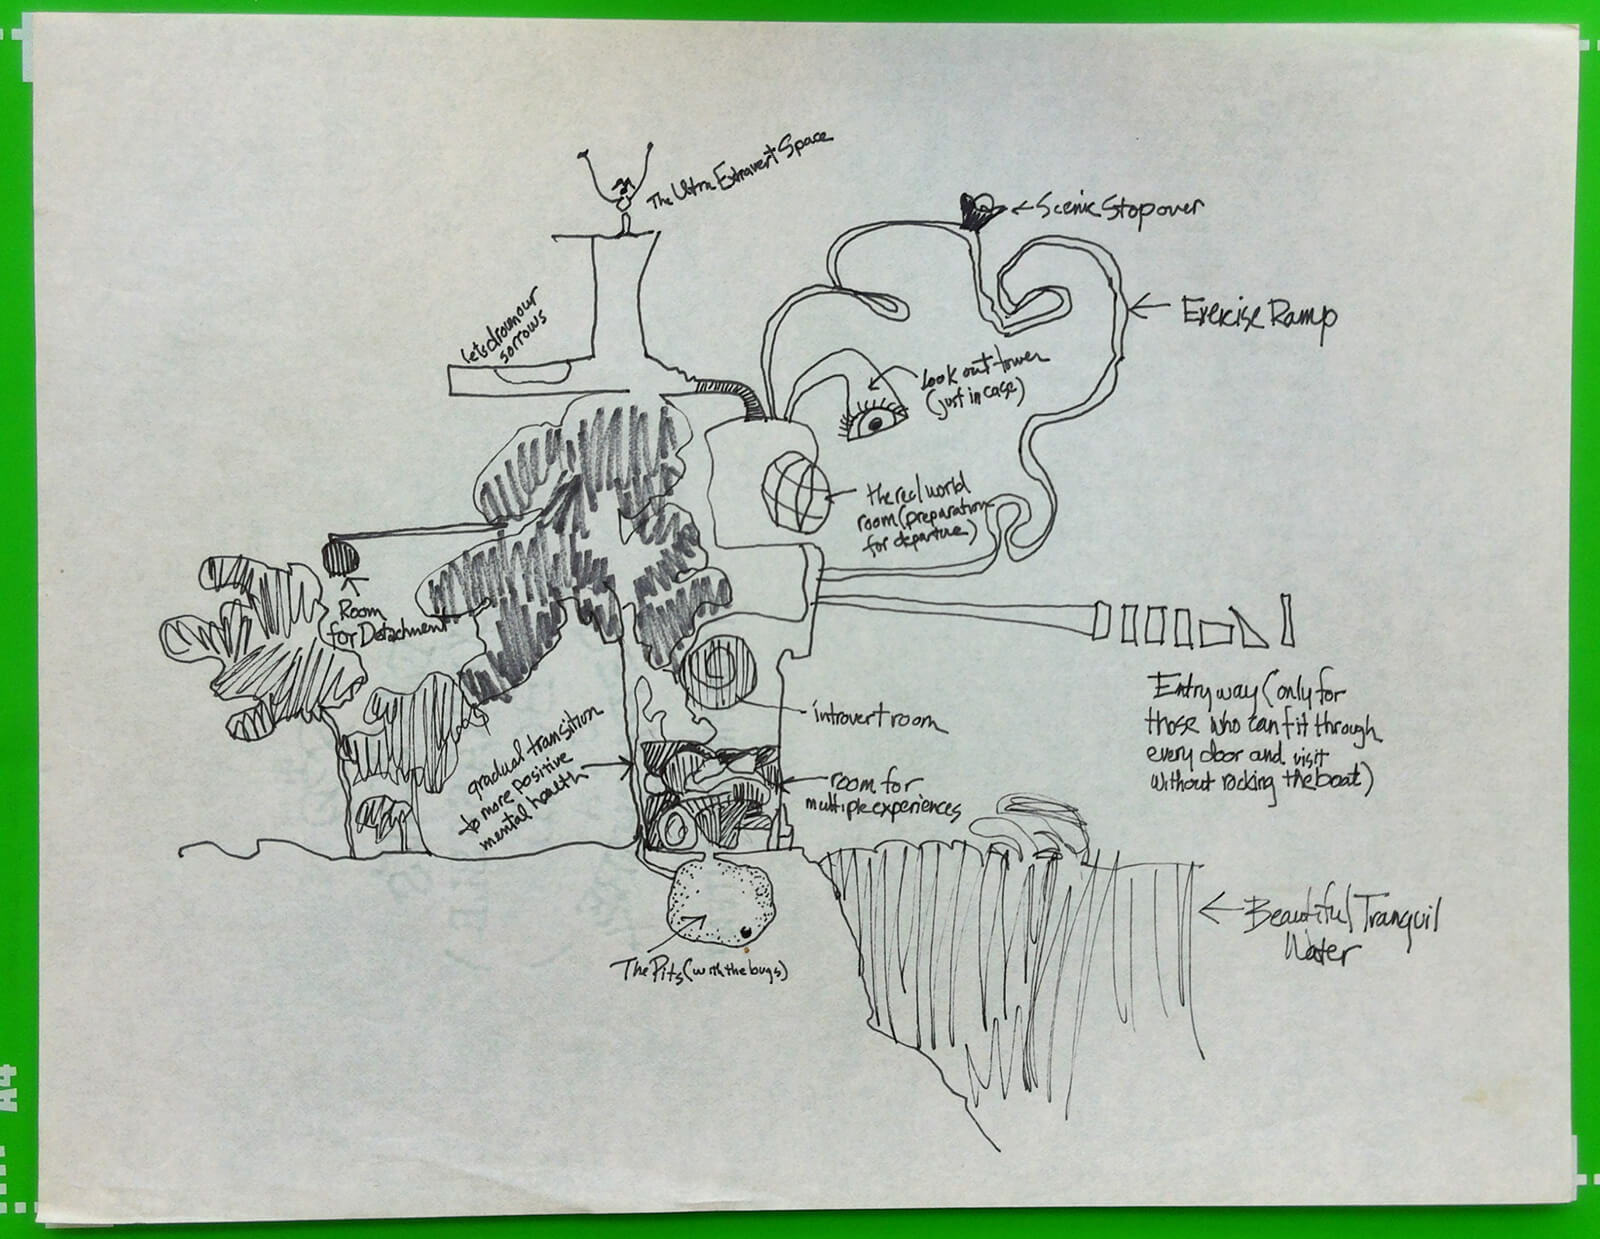 The Ultra Extravert Space
Scenic Stopover
lets drown our
sorrows
Exercise Ramp
Look out tower
(just in case)
the real world
room (preparation
for departure)
Room
for Detachment
Entry way (only for
those who can fit through
every door and visit
without rocking the boat)
introvert room
gradual transition
to more positive
mental health
room for
multiple experiences
Beautiful Tranquil
Water
The Pits (with the bugs)
A4